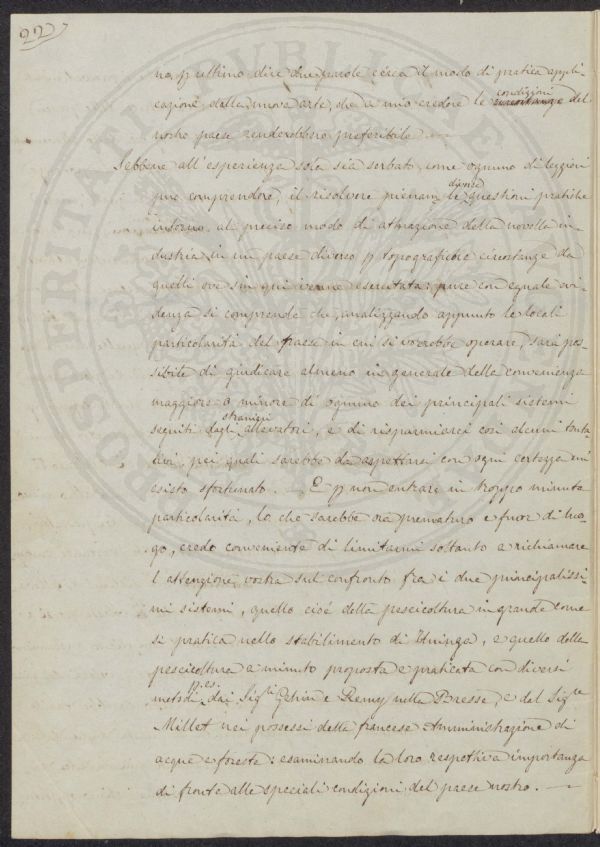 22
no, p ultimo dire due parole circa il modo di pratica appli-
cazione della nuova arte, che a mio credere le condizioni circostanze del
nostro paese renderebbero preferibile. —
Sebbene all'esperienza sola sia serbato, come ognuno di leggieri
può comprendere, il risolvere pienam. le diverse questioni pratiche
intorno al preciso modo di attivazione della novella in-
dustria in un paese diverso p topografiche circostanze da
quelli ove sin qui venne esercitata: pure con eguale evi-
denza si comprende che, analizzando appunto le locali
particolarità del paese in cui si vorrebbe operare, sarà pos-
sibile di giudicare almeno in generale della convenienza
maggiore o minore di ognuno dei principali sistemi
seguiti dagli stranieri allevatori, e di risparmiarci così alcuni tenta-
tivi, pei quali sarebbe da aspettarsi con ogni certezza un
esito sfortunato. — E p non entrare in troppo minuta
particolarità, lo che sarebbe ora prematuro e fuor di luo-
go, credo conveniente di limitarmi soltanto a richiamare
l'attenzione vostra sul confronto fra i due principalissi-
mi sistemi, quello cioè della pescicoltura in grande come
si pratica nello stabilimento di Huninga, e quello della
pescicoltura a minuto proposta e praticata con diversi
metodi p. es. dai Sigri Gehin e Remy nella Bresse, e dal Sigre
Millet nei possessi della francese Amministrazione di
acque e foreste: esaminando la loro respettiva importanza
di fronte alle speciali condizioni del paese nostro. —
PROSPERITATI PVBLICAE